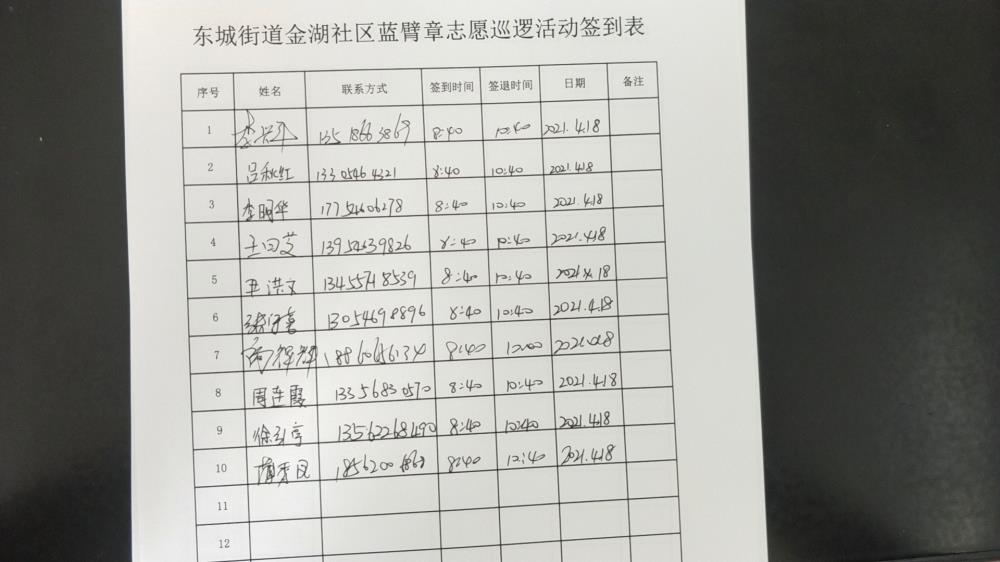 东城街道金湖社区蓝臂章志愿巡逻活动签到表
序号 姓名 联系方式 签到时间 签退时间 日期 备注
1 8:40 10:40 2021.4.18
2 吕秋红 13305464321 8:40 10:40 2021.4.18
3 李明华 17754606278 8:40 10:40 2021.4.18
4 13954639826 8:40 10:40 2021.4.18
5 尹洪文 13455718539 8:40 10:40 2021.4.18
6 13054698896 8:40 10:40 2021.4.18
7 8:40
8 周连霞 13356830570 8:40 10:40 2021.4.18
9 13562268490 8:40 10:40 2021.4.18
10 8:40 2021.4.18
11
12